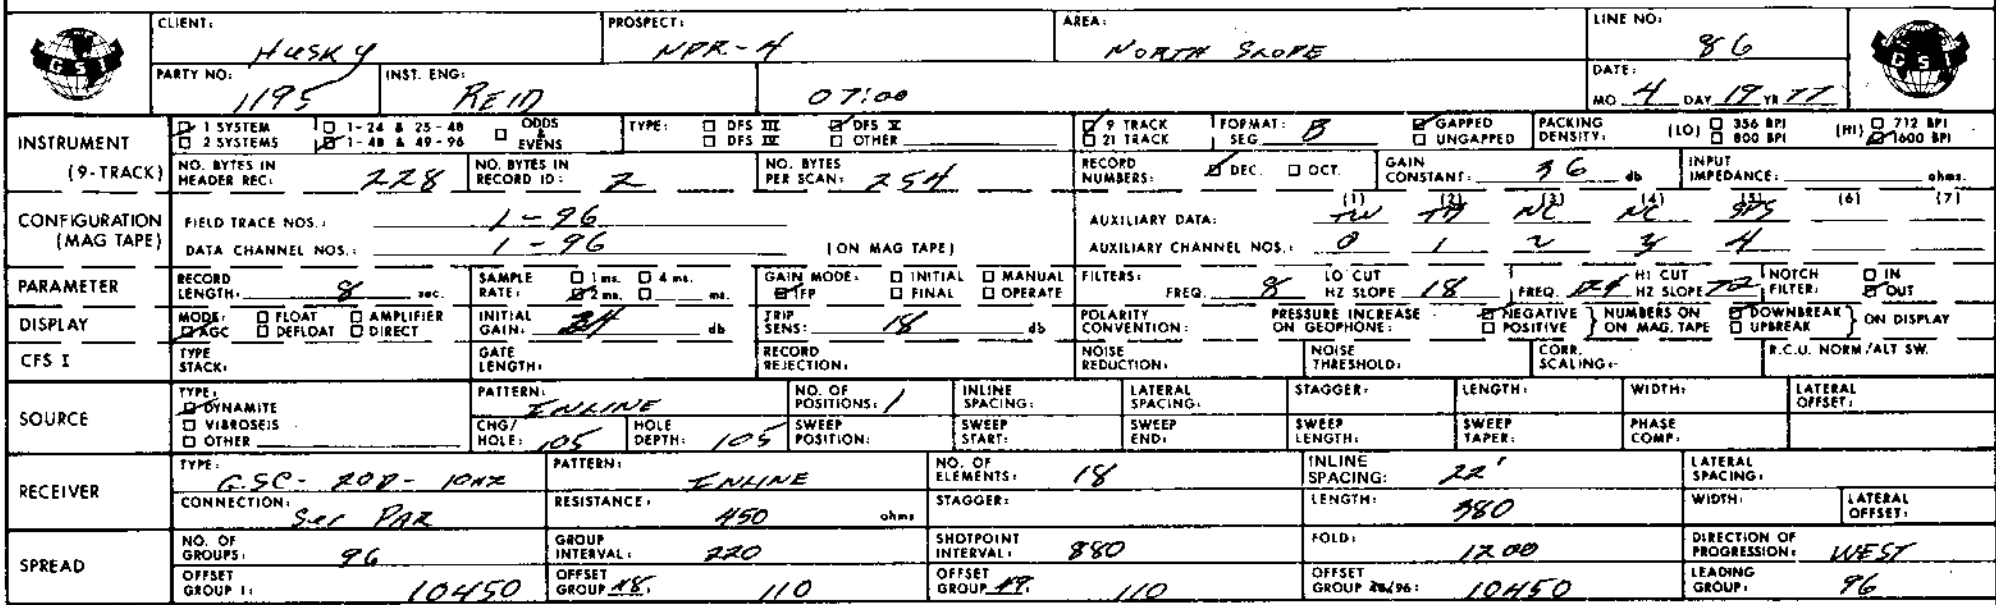 CLIENT: Husky PROSPECT: NPR-4 AREA: NORTH SLOPE LINE NO: 86
GSI GSI
PARTY NO: 1195 INST. ENG: REID 07:00 DATE: MO 4 DAY 19 YR 77
INSTRUMENT (9-TRACK) 1 SYSTEM 1-24 & 25-48 ODDS & EVENS TYPE: DFS III DFS V 9 TRACK FORMAT: SEG B GAPPED PACKING DENSITY: (LO) 356 BPI (HI) 712 BPI
2 SYSTEMS 1-48 & 49-96 DFS IV OTHER 21 TRACK UNGAPPED 800 BPI 1600 BPI
NO. BYTES IN HEADER REC: 228 NO. BYTES IN RECORD ID: 2 NO. BYTES PER SCAN: 254 RECORD NUMBERS: DEC. OCT. GAIN CONSTANT: 36 db INPUT IMPEDANCE: ohms.
CONFIGURATION (MAG TAPE) FIELD TRACE NOS.: 1-96 AUXILIARY DATA: (1) TW (2) (3) NC (4) NC (5) SPS (6) (7)
DATA CHANNEL NOS.: 1-96 (ON MAG TAPE) AUXILIARY CHANNEL NOS.: 0 1 2 3 4
PARAMETER RECORD LENGTH: 8 sec. SAMPLE RATE: 1 ms. 4 ms. 2 ms. ms. GAIN MODE: INITIAL MANUAL IFP FINAL OPERATE FILTERS: FREQ. 8 LO CUT HZ SLOPE 18 FREQ. HI CUT HZ SLOPE 72 NOTCH FILTER: IN OUT
DISPLAY MODE: FLOAT AMPLIFIER AGC DEFLOAT DIRECT INITIAL GAIN: 24 db TRIP SENS: 18 db POLARITY CONVENTION: PRESSURE INCREASE ON GEOPHONE: NEGATIVE POSITIVE NUMBERS ON ON MAG. TAPE DOWNBREAK UPBREAK ON DISPLAY
CFS I TYPE STACK: GATE LENGTH: RECORD REJECTION: NOISE REDUCTION: NOISE THRESHOLD: CORR. SCALING: R.C.U. NORM/ALT SW.
SOURCE TYPE: DYNAMITE VIBROSEIS OTHER PATTERN: INLINE NO. OF POSITIONS: 1 INLINE SPACING: LATERAL SPACING: STAGGER: LENGTH: WIDTH: LATERAL OFFSET:
CHG/HOLE: 105 HOLE DEPTH: 105 SWEEP POSITION: SWEEP START: SWEEP END: SWEEP LENGTH: SWEEP TAPER: PHASE COMP:
RECEIVER TYPE: GSC-20D-10HZ PATTERN: INLINE NO. OF ELEMENTS: 18 INLINE SPACING: 22' LATERAL SPACING:
CONNECTION: Ser PAR RESISTANCE: 450 ohms STAGGER: LENGTH: 380 WIDTH: LATERAL OFFSET:
SPREAD NO. OF GROUPS: 96 GROUP INTERVAL: 220 SHOTPOINT INTERVAL: 880 FOLD: 1200 DIRECTION OF PROGRESSION: WEST
OFFSET GROUP 1: 10450 OFFSET GROUP 48: 110 OFFSET GROUP 49: 110 OFFSET GROUP 48/96: 10450 LEADING GROUP: 96